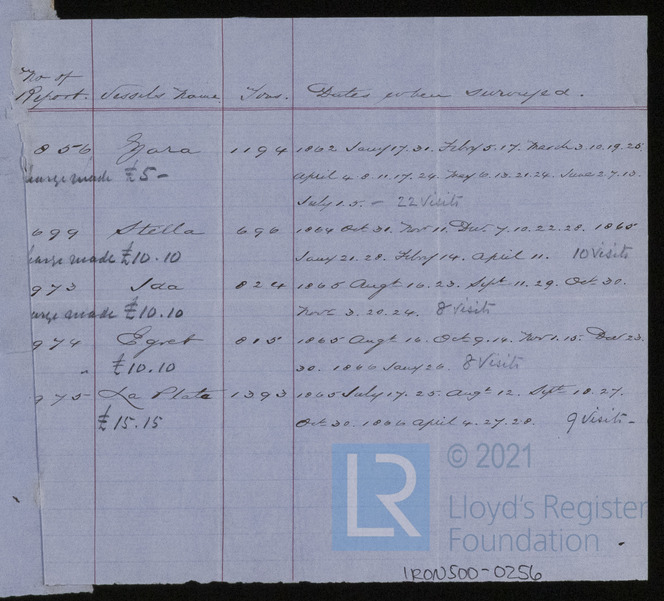 No of
Report. Vessels Name Tons. Dates when surveyed.
856 Zara 1194 1862 Jany 17.31. Feby 5.17. March 3.10.19.25
charge made £5 - April 4.8.11.17.24. May 6.13.21.24. June 27.13.
July 1.5. - 22 Visits
699 Stella 696 1864 Oct 31. Nov 11. Decr 7.10.22.28. 1865
charge made £10.10 Jany 21.28. Feby 14. April 11. 10 Visits
973 Ida 824 1865 Augt 16.23. Sept 11.29. Oct 30.
charge made £10.10 Nov 3.20.24. 8 Visits
974 Egret 815 1865 Augt 16. Oct 9.14. Nov 1.15. Decr 23.
" £10.10 30. 1866 Jany 26. 8 Visits
975 La Plata 1393 1865 July 17.25. Augt 12. Sept 18.27.
£15.15 Oct 30. 1866 April 4.27.28. 9 Visits -
LR
© 2021
Lloyd's Register
Foundation
IRON500-0256